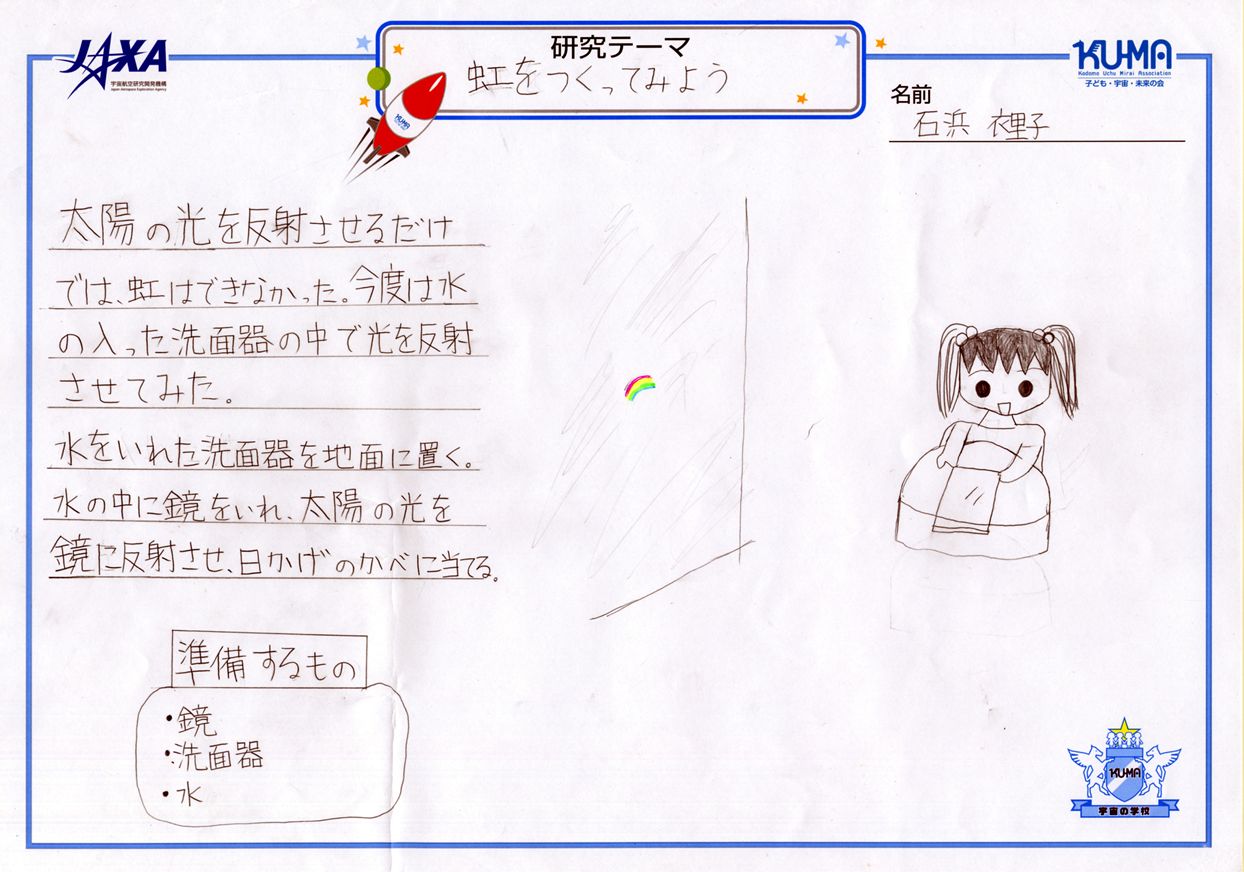 JAXA
宇宙航空研究開発機構
Japan Aerospace Exploration Agency
研究テーマ
虹をつくってみよう
KUMA
KU-MA
Kodomo Uchu Mirai Association
子ども・宇宙・未来の会
名前
石浜 衣里子
太陽の光を反射させるだけ
では、虹はできなかった。今度は水
の入った洗面器の中で光を反射
させてみた。
水をいれた洗面器を地面に置く。
水の中に鏡をいれ、太陽の光を
鏡に反射させ、日かげのかべに当てる。
準備するもの
・鏡
・洗面器
・水
KUMA
宇宙の学校